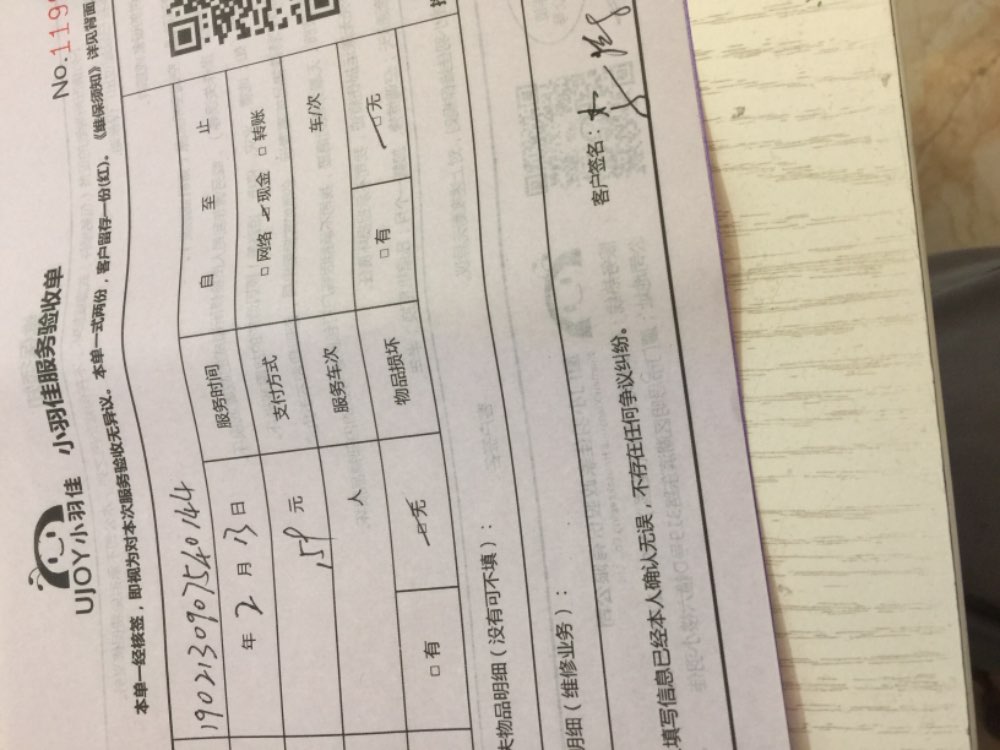 No.119
UJOY小羽佳 小羽佳服务验收单
本单一经核签，即视为对本次服务验收无异议。本单一式两份，客户留存一份(红)。《维保须知》详见背面
1902130907540144
年 2 月 13 日 服务时间 自 至 止
159 元 支付方式 □ 网络 ☑ 现金 □ 转账
人 服务车次 车/次
□ 有 ☑ 无 物品损坏 □ 有 ☑ 无
失物品明细（没有可不填）：
明细（维修业务）：
客户签名：
填写信息已经本人确认无误，不存在任何争议纠纷。